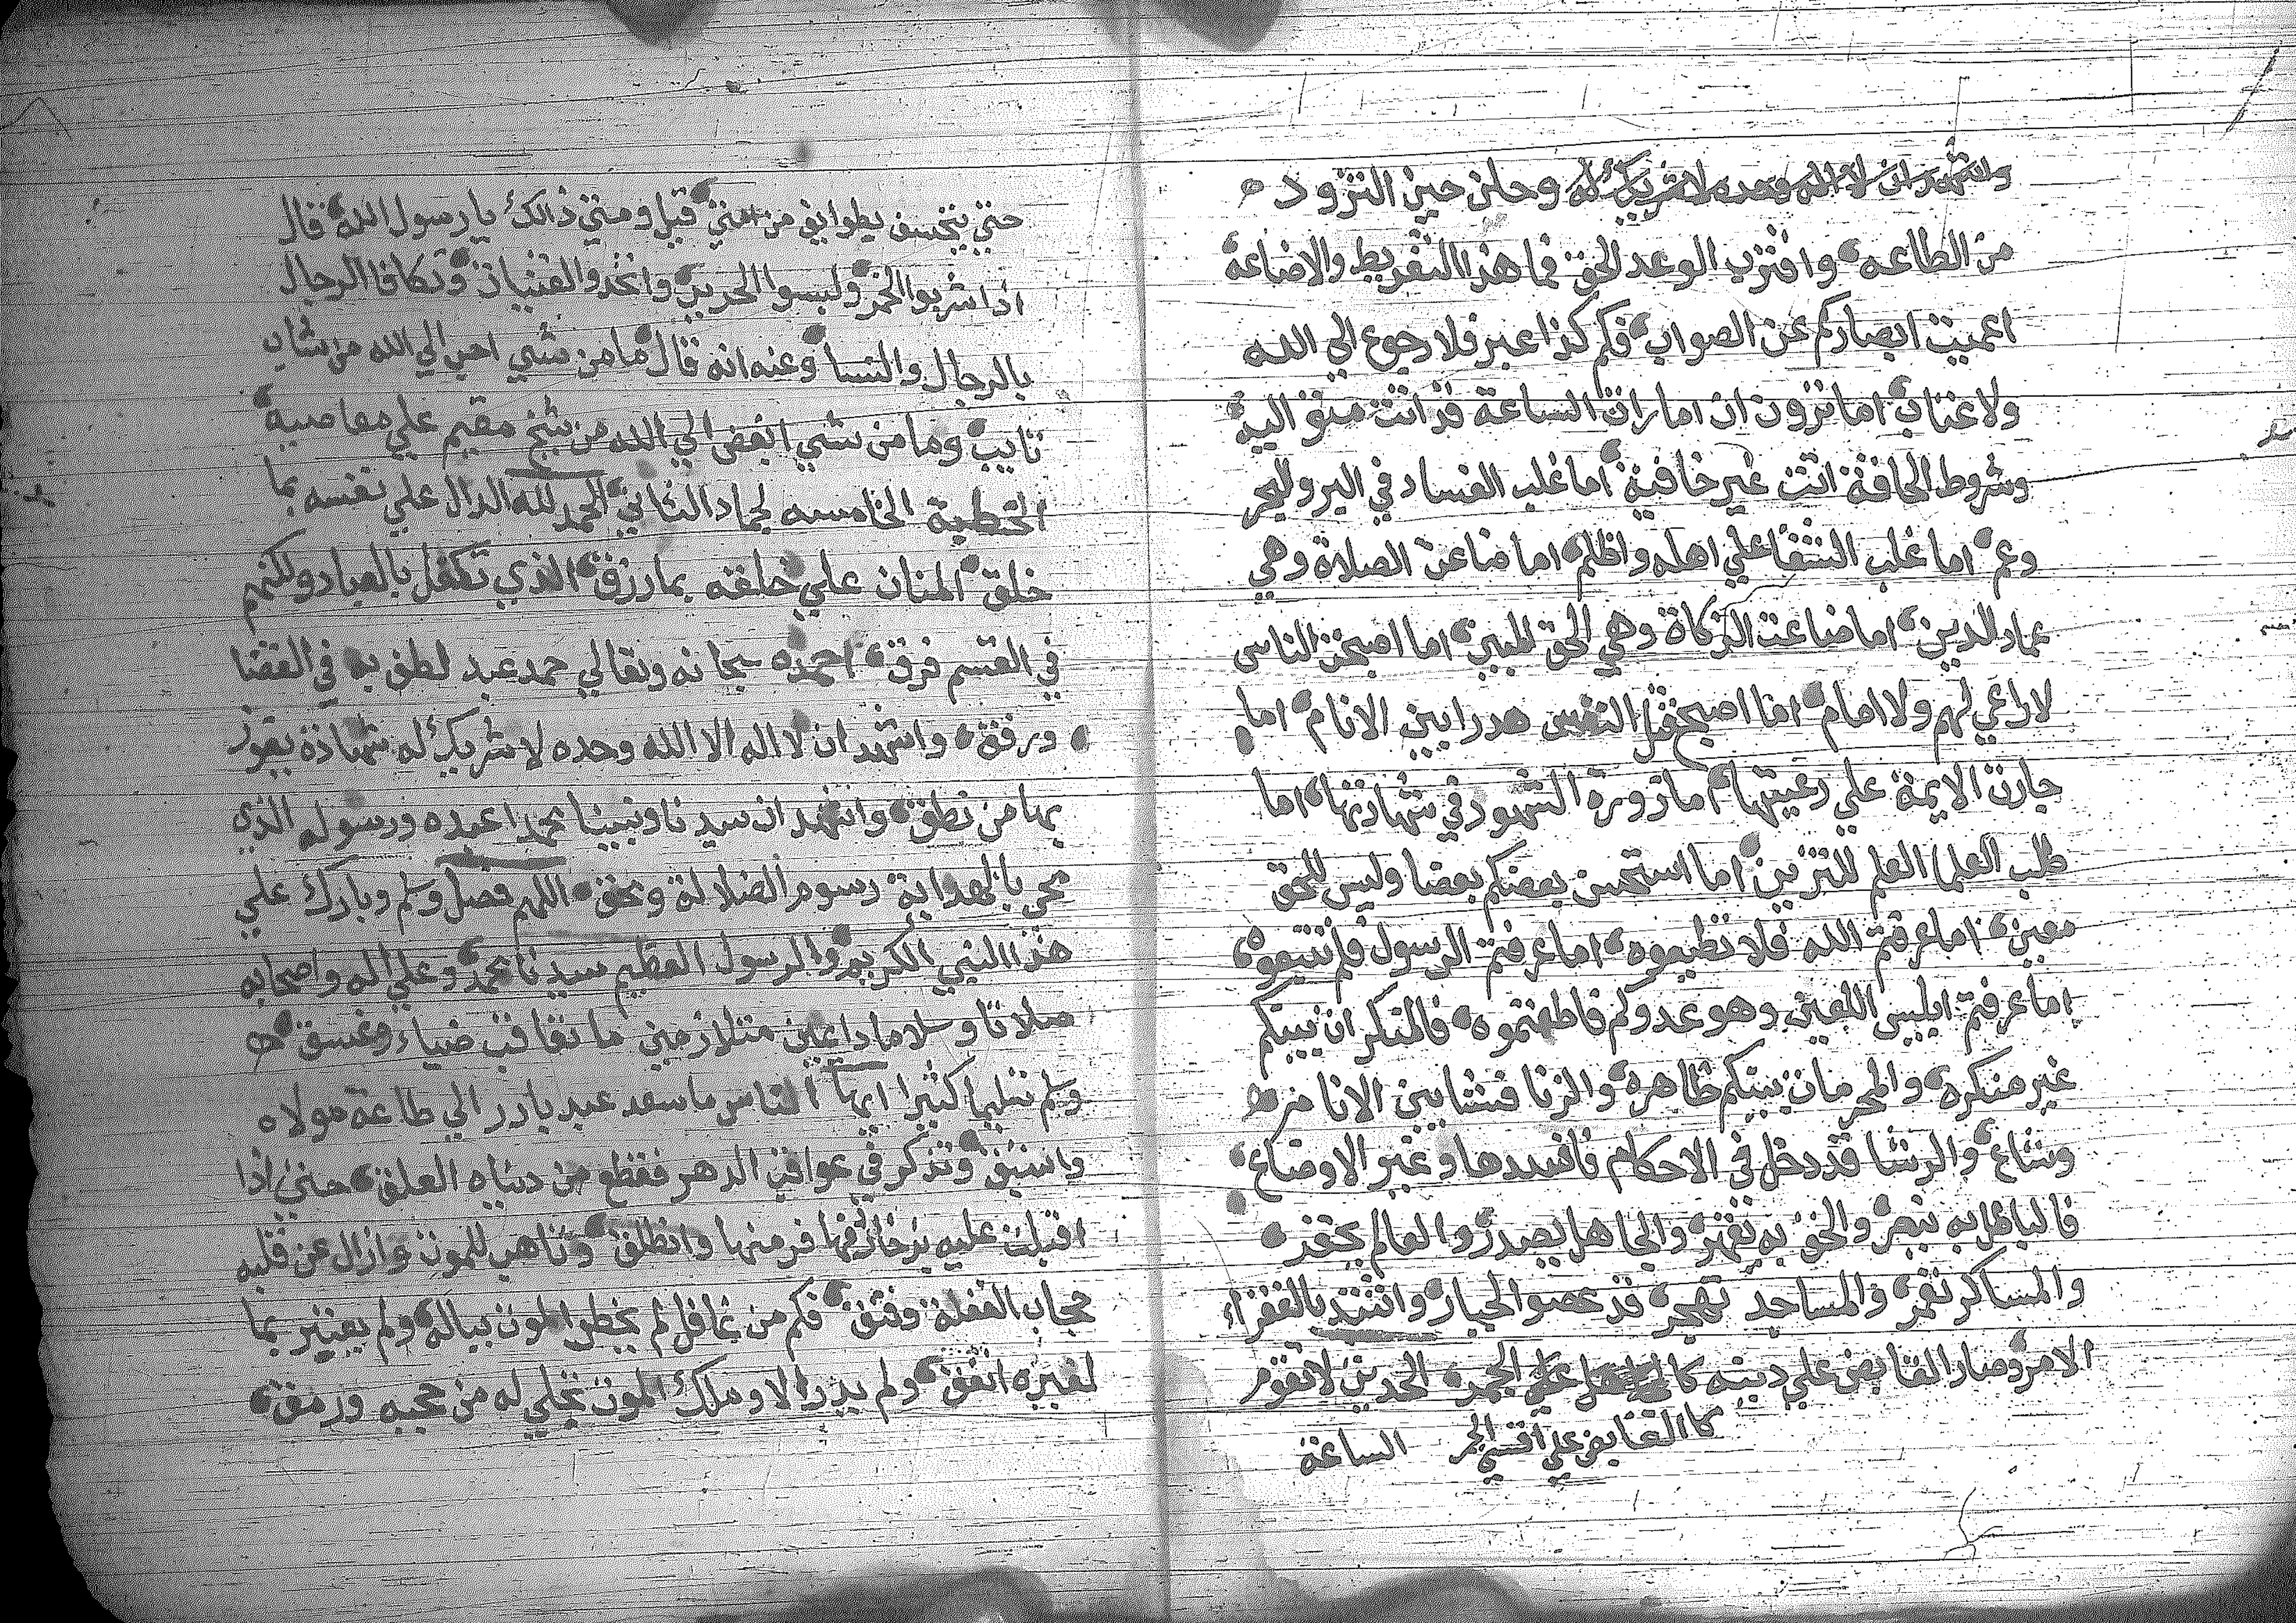 واشهد ان لا اله الا الله وحده لا شريك له وحان حين التزود
من الطاعه وافترب الوعد الحق فما هذا التفريط والاضاعه
اعميت ابصاركم عن الصواب فكم كذا عبر فلا رجوع الي الله
ولا عتاب اما ترون ان امارات الساعة قد اتت متواليه
وشروط الحاقة اتت غير خافية اما غلب الفساد في البر والبحر
وعم اما غلب الشقا علي اهله واظلم اما ضاعت الصلاة وهي
عماد الدين اما ضاعت الزكاة وهي الحق المبين اما اصبحت الناس
لا راعي لهم ولا امام اما اصبح قتل النفس هدرا بين الانام اما
جارت الايمة علي رعيتها اما زورة الشهود في شهادتها اما
طلب العلما العلم للتزين اما استحسن بعضكم بعضا وليس للحق
معين اما عرفتم الله فلا تطيعوه اما عرفتم الرسول فلم تتبعوه
اما عرفتم ابليس اللعين وهو عدوكم فاطعتموه فالمنكرات بينكم
غير منكره والمحرمات بينكم ظاهره والزنا فشا بين الانام
وشاع والرشا قد دخل في الاحكام فافسدها وغير الاوضاع
فالباطل به ينصر والحق به يقهر والجاهل يصدر والعالم يحقر
والمساكر تعمر والمساجد تهجر قد عصوا الجبار واشتد بالفقراء
الامر وصار القابض علي دينه علي الجمر الحديث لا تقوم
كا القابض علي الجمر الساعة
حتي يخسف بطوايف من امتي قيل ومتي ذالك يا رسول الله قال
اذا شربوا الخمر ولبسوا الحرير واتخدوا القينات وتكافا الرجال
بالرجال والنسا وعنه انه قال ما من شي احب الي الله من شاب
تايب وما من شي ابغض الي الله من شيخ مقيم علي معاصيه
الخطبة الخامسه لجماد الثاني الحمد لله الدال علي نفسه بما
خلق المنان علي خلقه بما رزق الذي تكفل بالعباد ولكنهم
في القسم فرق احمده سبحانه وتعالي حمد عبد لطف به في القضا
ورفق واشهد ان لا اله الا الله وحده لا شريك له شهادة يفوز
بها من نطق واشهد ان سيدنا ونبينا محمدا عبده ورسوله الذي
محي بالهداية رسوم الضلالة ومحق اللهم فصل وسلم وبارك علي
هذا النبي الكريم والرسول العظيم سيدنا محمد وعلي اله واصحابه
صلاتا وسلاما دايمين متلازمين ما تعاقب ضياء وغسق
وسلم تسليما كثيرا ايها الناس ما سعد عبد بادر الي طاعة مولاه
واستبق وتذكر في عواقب الدهر فقطع من دنياه العلق حتي اذا
اقبلت عليه بزخارفها فر منها وانطلق وتاهب للموت وازال عن قلبه
حجاب الغفلة وفتق فكم من غافل لم يخطر الموت بباله ولم يعتبر بما
لغيره اتفق ولم يدر الا وملك الموت تجلي له من حجبه ورمق